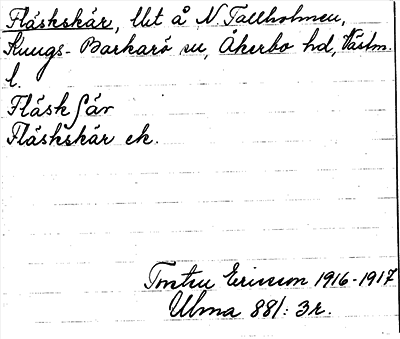 Fläskskär, Utt å N Tallholmen,
Kungs-Barkarö sn, Åkerbo hd, Västm.
l.
Fläskʃär
Fläskskär ek.
Torsten Ericsson 1916-1917
Ulma 881: 3 r.